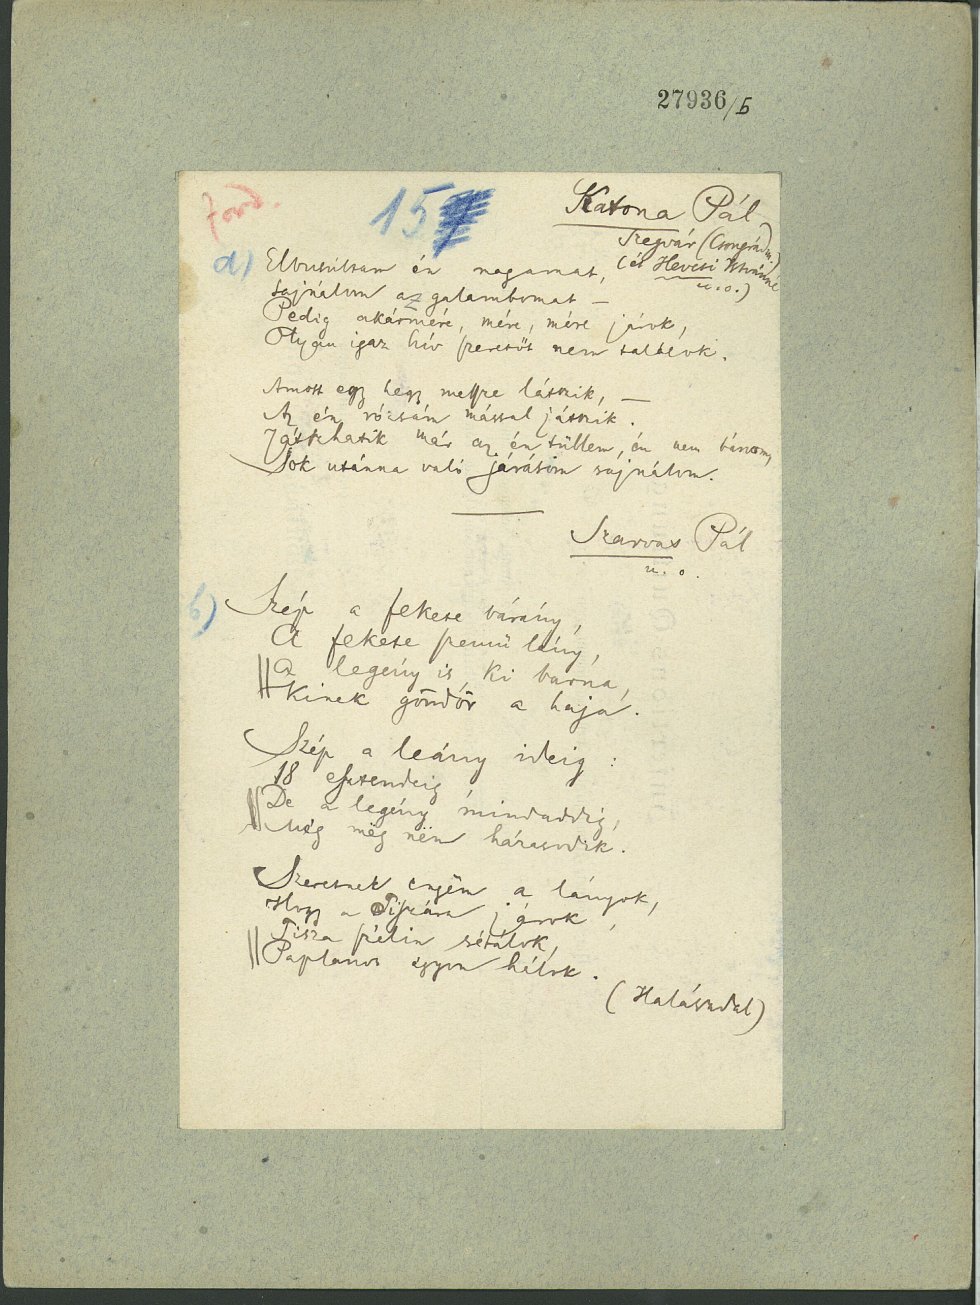 27936/b
ford.
15
Katona Pál
Szegvár (Csongrádm.)
(és Hevesi Istvánné
u.o.)
a) Elbusultam én magamat,
Sajnálom az galambomat —
Pedig akármére, mére, mére járok,
Olyan igaz hív szeretőt nem találok.
Amott egy hegy messze látszik, —
Az én rózsám mással játszik.
Játszhatik már az én tüllem, én nem bánom,
Sok utánna való járásom sajnálom.
Szarvas Pál
u. o.
b) Szép a fekete bárány,
A fekete szemü lány,
A legény is, ki barna,
Kinek göndör a haja.
Szép a leány ideig :
18 esztendeig
De a legény mindaddig,
Míg mëg nëm házasodik.
Szeretnek engëm a lányok,
Hogy a Tiszára járok,
Tisza szélin sétálok,
Paplanos ágyon hálok.
(Halászdal)